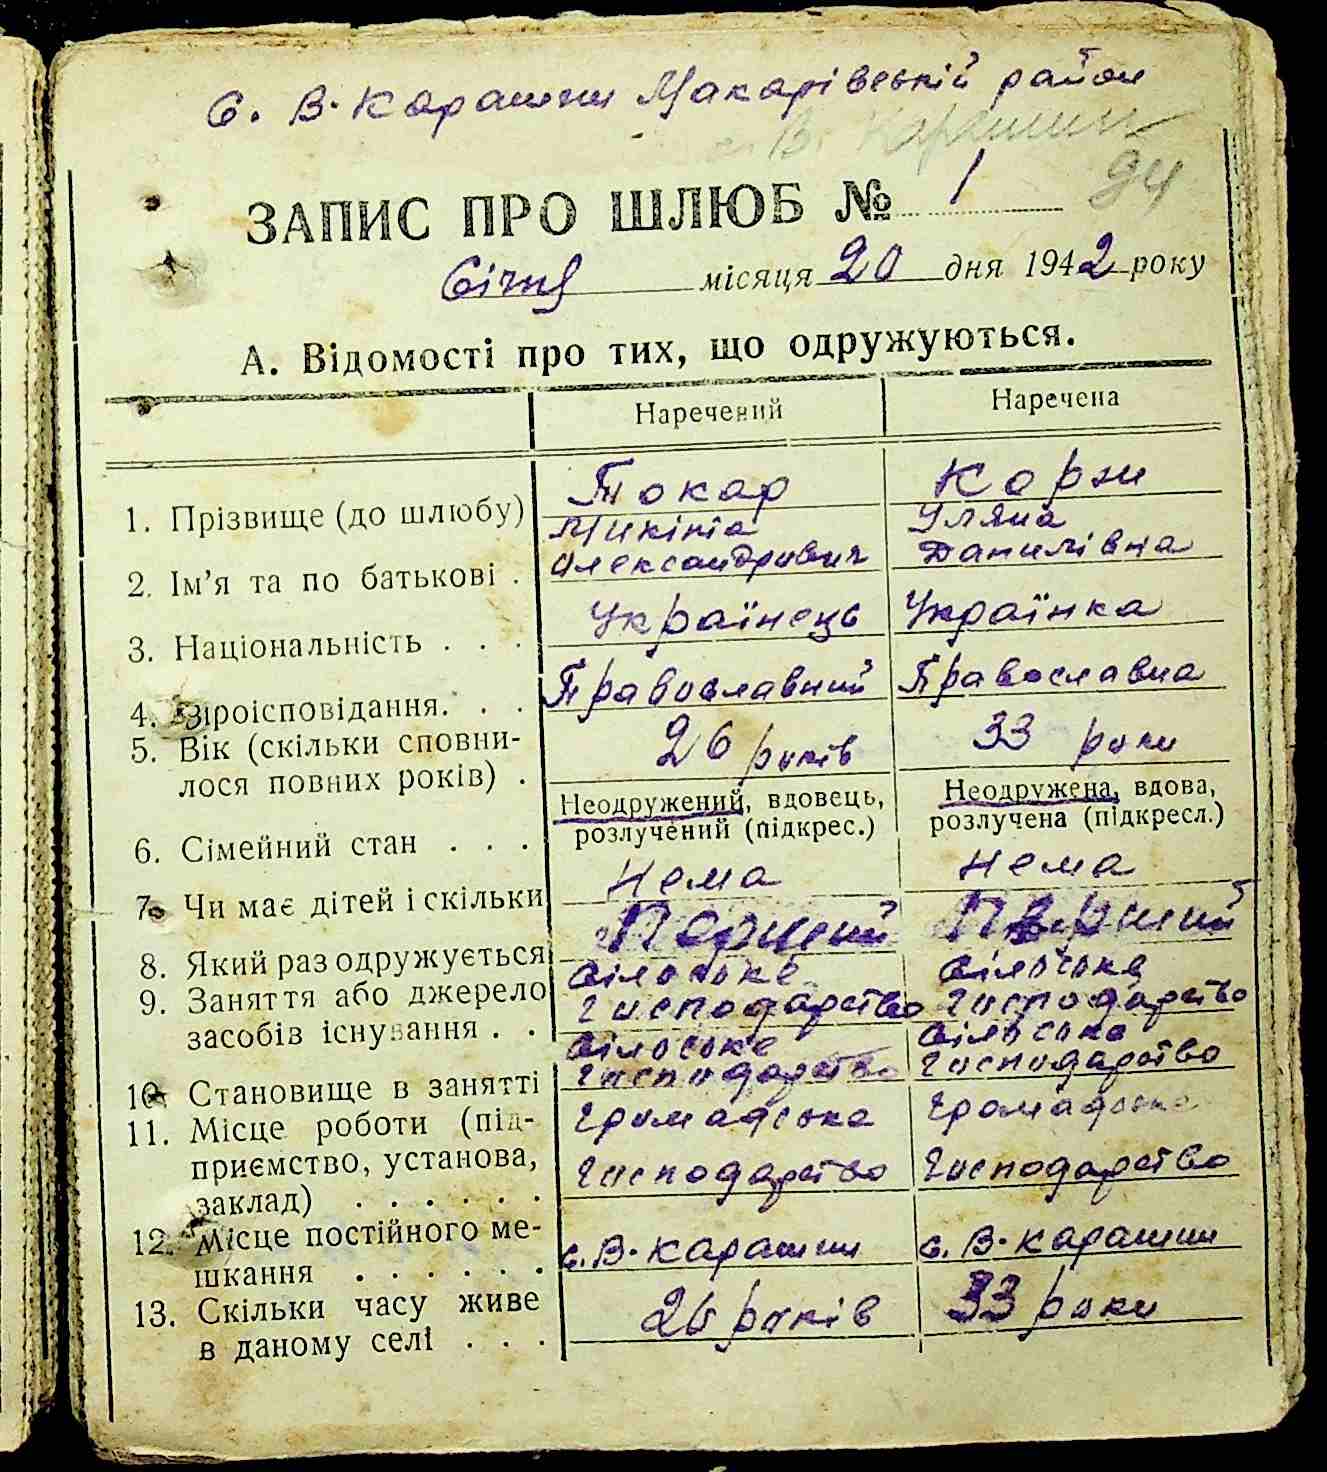 с. В. Карашин Макарівській район
с. В. Карашин
94
ЗАПИС ПРО ШЛЮБ № 1
Січня місяця 20 дня 1942 року
А. Відомості про тих, що одружуються.
Наречений Наречена
1. Прізвище (до шлюбу) Токар Корзн
2. Ім'я та по батькові . Микіта Олександрович Уляна Данилівна
3. Національність . . . Українець Українка
4. Віроісповідання. . . Православний Православна
5. Вік (скільки сповни-
лося повних років) . 26 років 33 роки
6. Сімейний стан . . . Неодружений, вдовець, розлучений (підкрес.) Неодружена, вдова, розлучена (підкресл.)
7. Чи має дітей і скільки Нема Нема
8. Який раз одружується Перший Перший
9. Заняття або джерело
засобів існування . . сільське господарство сільське господарство
10. Становище в занятті сільське господарство сільське господарство
11. Місце роботи (під-
приємство, установа,
заклад) . . . . . . громадське господарство громадське господарство
12. Місце постійного ме-
шкання . . . . . . с. В. Карашин с. В. Карашин
13. Скільки часу живе
в даному селі . . . 26 років 33 роки